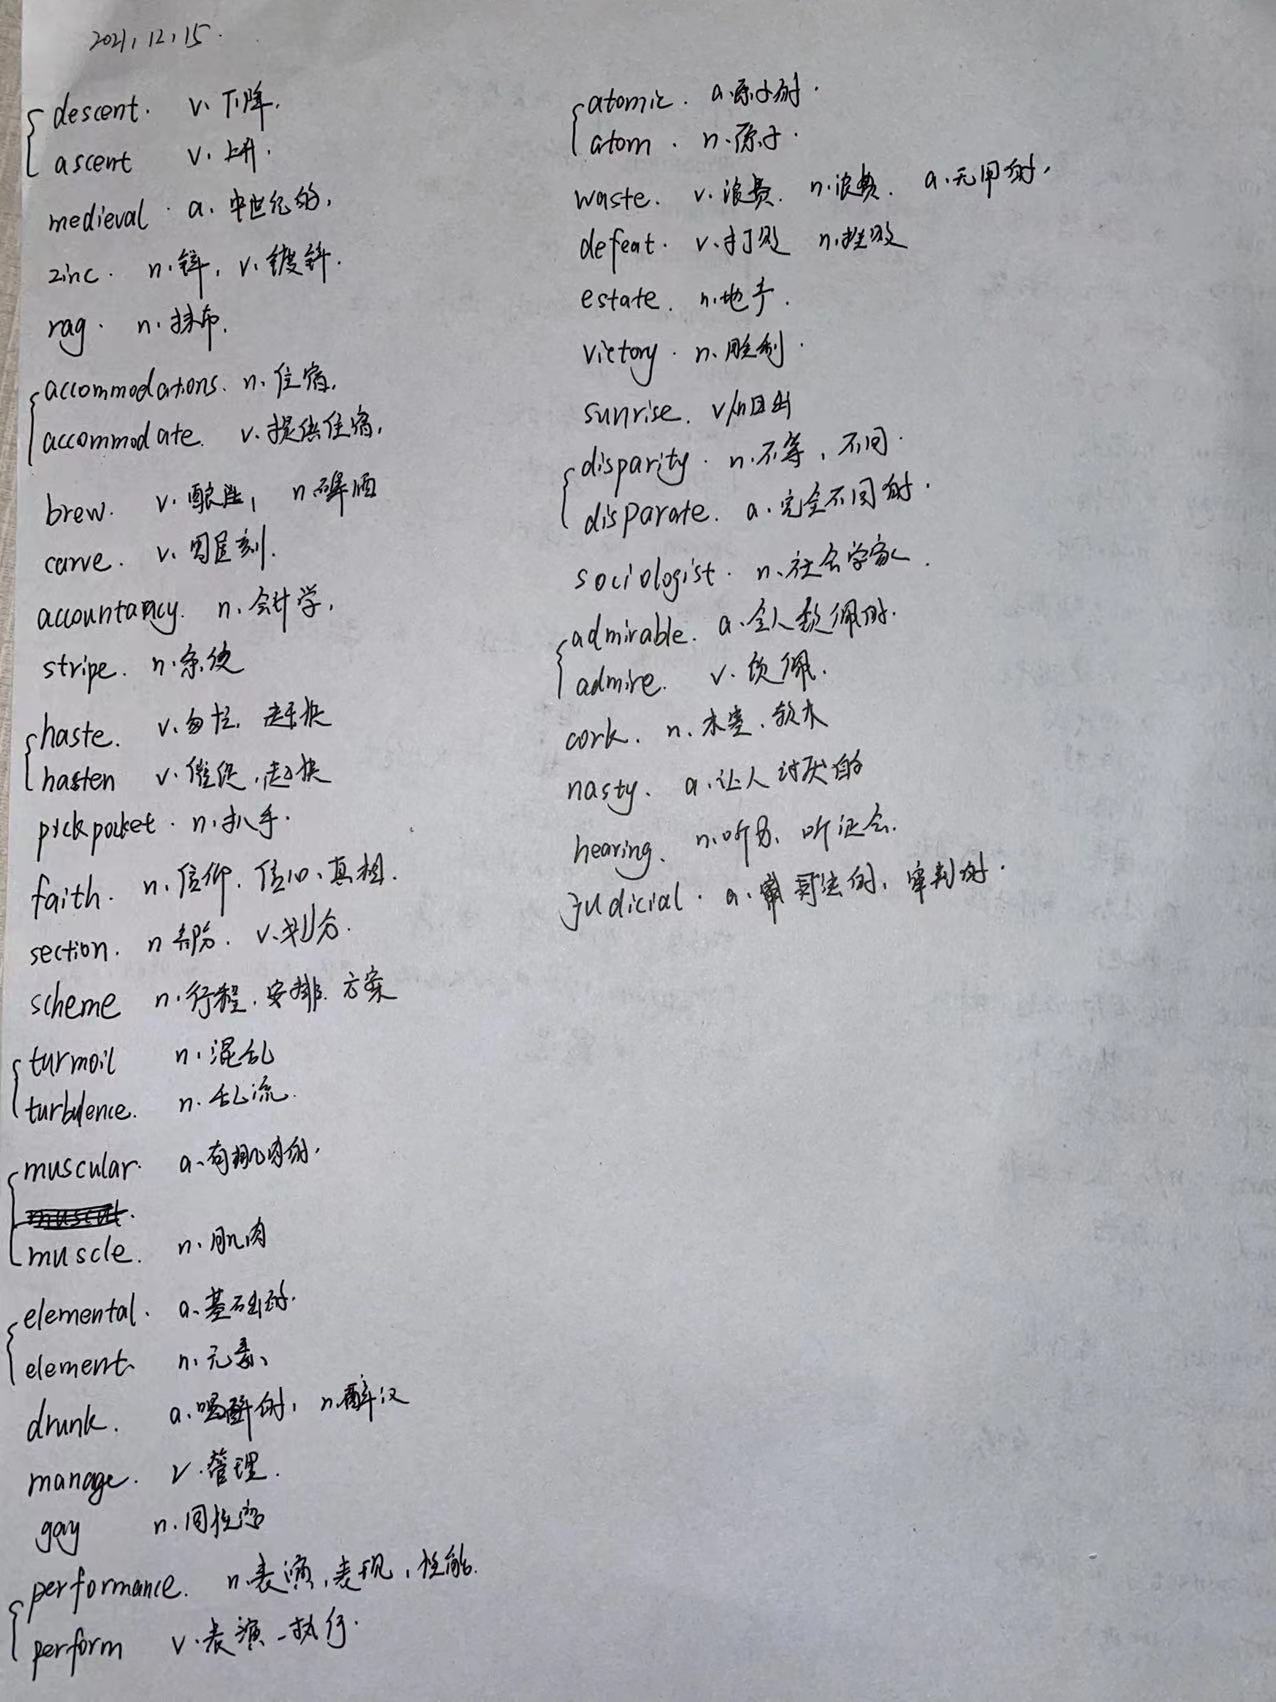 2021.12.15.
descent. v.下降.
ascent v.上升.
medieval. a.中世纪的.
zinc. n.锌, v.镀锌.
rag. n.抹布.
accommodations. n.住宿.
accommodate. v.提供住宿.
brew. v. n.啤酒
carve. v.刻.
accountancy. n.会计学.
stripe. n.条纹
haste. v.匆忙, 赶快
hasten v.催促, 赶快
pickpocket. n.扒手.
faith. n.信仰. 信心、真相.
section. n部分. v.划分.
scheme n.行程. 安排. 方案
turmoil n.混乱
turbulence. n.乱流.
muscular. a.有肌肉的.
muscle. n.肌肉
elemental. a.基础的.
element. n.元素、
drunk. a.喝醉的, n.醉汉
manage. v.管理.
gay n.同性恋
performance. n.表演, 表现, 性能.
perform v.表演 - 执行.
atomic. a.原子的.
atom. n.原子.
waste. v.浪费. n.浪费. a.无用的.
defeat. v.打败 n.挫败
estate. n.地产.
victory. n.胜利.
sunrise. v/n日出
disparity. n.不等, 不同.
disparate. a.完全不同的.
sociologist. n.社会学家.
admirable. a.令人钦佩的.
admire. v.钦佩.
cork. n.木塞. 软木
nasty. a.让人讨厌的
hearing. n.听力, 听证会.
judicial. a.司法的, 审判的.